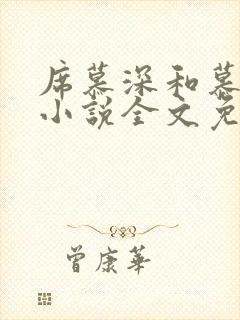 席慕深和慕
小说全文免
曾康华